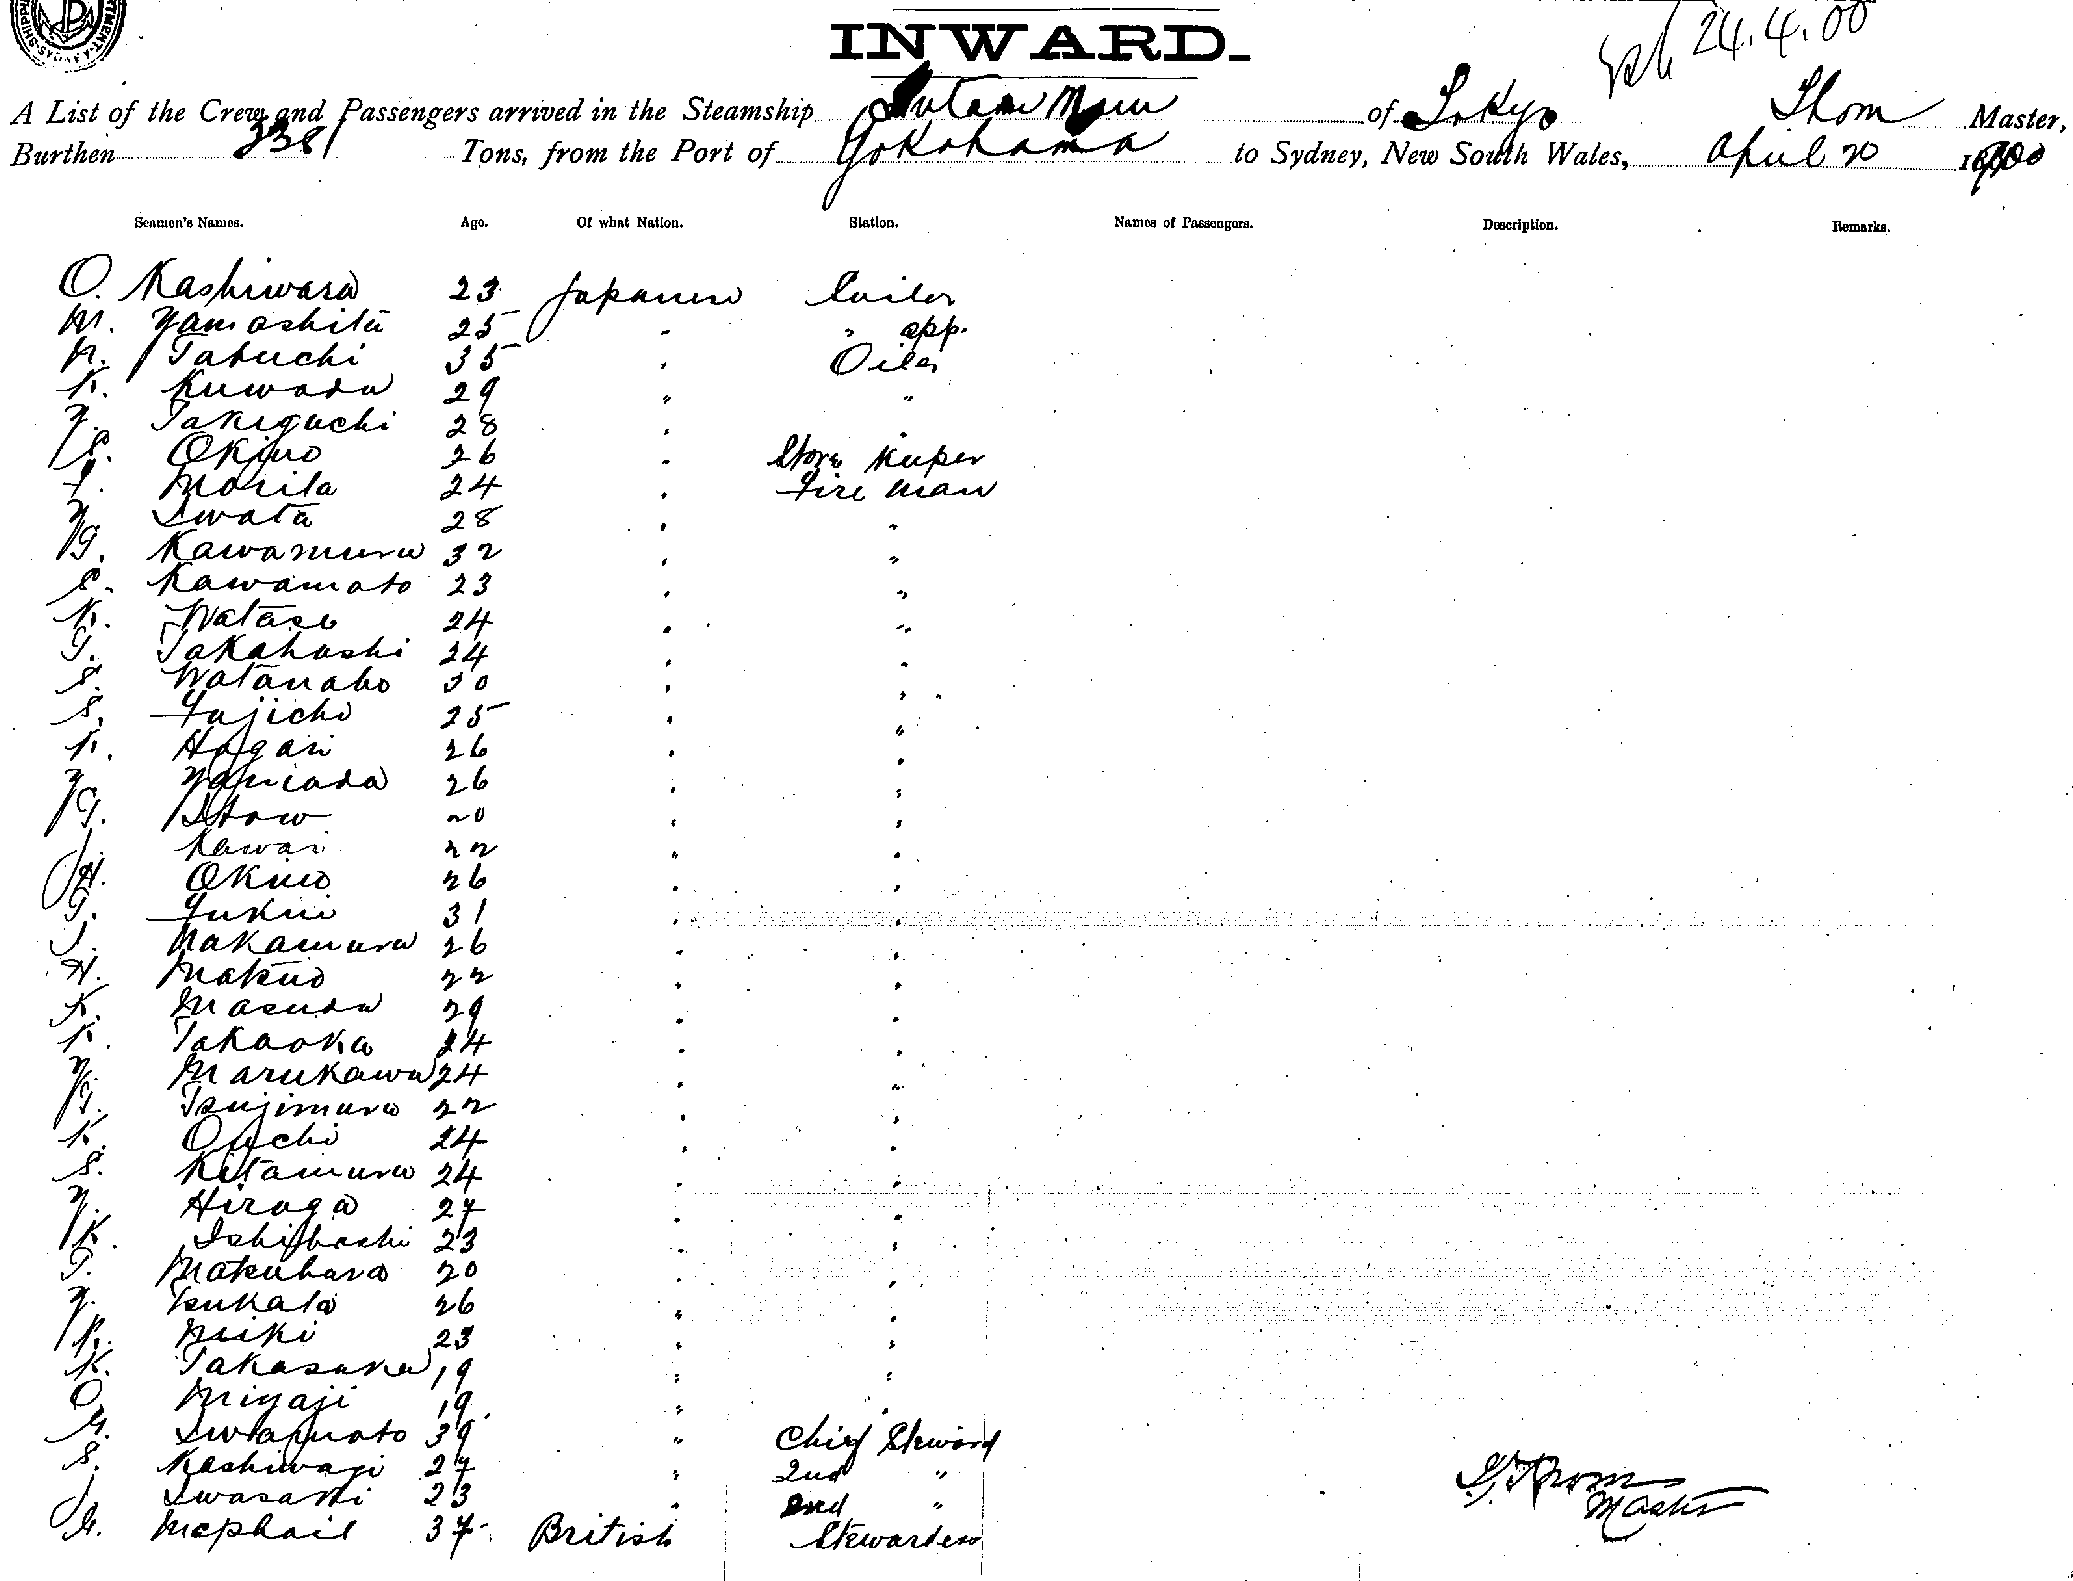 INWARD.
24.4.00
A List of the Crew and Passengers arrived in the Steamship Futami Maru of Tokyo Thom Master,
Burthen 3381 Tons, from the Port of Yokohama to Sydney, New South Wales, April 20 1900
Seamen's Names. Age. Of what Nation. Station. Names of Passengers. Description. Remarks.
O. Kashiwara 23 Japanese Sailor
M. Yamashita 25 " " app.
N. Tabuchi 35 " Oiler
K. Kuwada 29 " "
Y. Takiguchi 28 " "
S. Okino 26 " Store Keeper
Morita 24 " Fire Man
Y. Iwata 28 " "
G. Kawamura 32 " "
S. Kawamoto 23 " "
K. Watase 24 " "
G. Takahashi 24 " "
S. Watanabe 30 " "
S. Fujichi 25 " "
K. Hagari 26 " "
Y. Yamada 26 " "
G. Itow 20 " "
J. Kawai 22 " "
H. Okino 26 " "
G. Fukui 31 " "
J. Nakamura 26 " "
H. Makino 22 " "
K. Masuda 29 " "
K. Takaoka 24 " "
Y. Marukawa 24 " "
G. Tsujimura 22 " "
K. Ouchi 24 " "
S. Kitamura 24 " "
Y. Hiraga 27 " "
K. Ishibashi 23 " "
G. Makuhara 20 " "
Y. Tsukata 26 " "
K. Miki 23 " "
K. Takasaka 19 " "
O. Miyaji 19 " "
M. Iwamoto 39 " Chief Steward
S. Kashiwagi 27 " 2nd "
J. Iwasaki 23 " 2nd "
M. McPhail 37 British Stewardess
Thom
Master